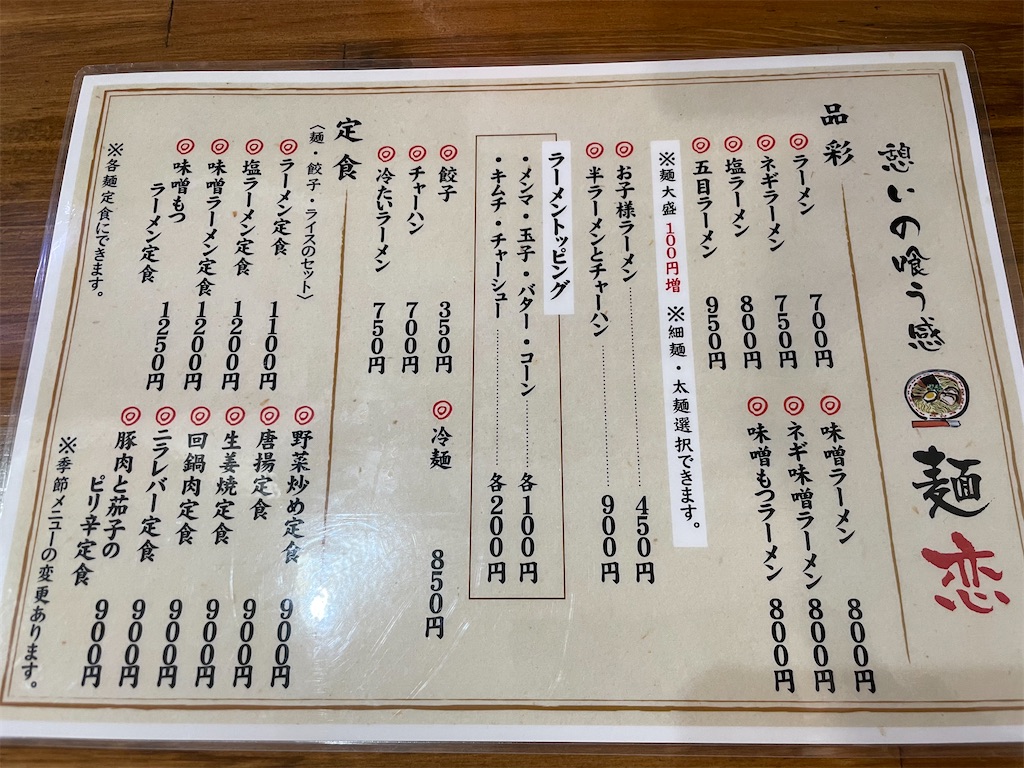 憩いの喰う感
麺恋
品彩
◎ラーメン 700円
◎ネギラーメン 750円
◎塩ラーメン 800円
◎五目ラーメン 950円
◎味噌ラーメン 800円
◎ネギ味噌ラーメン 800円
◎味噌もつラーメン 800円
※麺大盛 100円増 ※細麺・太麺選択できます。
◎お子様ラーメン 450円
◎半ラーメンとチャーハン 900円
ラーメントッピング
・メンマ・玉子・バター・コーン 各100円
・キムチ・チャーシュー 各200円
◎餃子 350円
◎チャーハン 700円
◎冷たいラーメン 750円
◎冷麺 850円
定食
〈麺・餃子・ライスのセット〉
◎ラーメン定食 1100円
◎塩ラーメン定食 1200円
◎味噌ラーメン定食 1200円
◎味噌もつ
ラーメン定食 1250円
※各麺定食にできます。
◎野菜炒め定食 900円
◎唐揚定食 900円
◎生姜焼定食 900円
◎回鍋肉定食 900円
◎ニラレバー定食 900円
◎豚肉と茄子の
ピリ辛定食 900円
※季節メニューの変更あります。